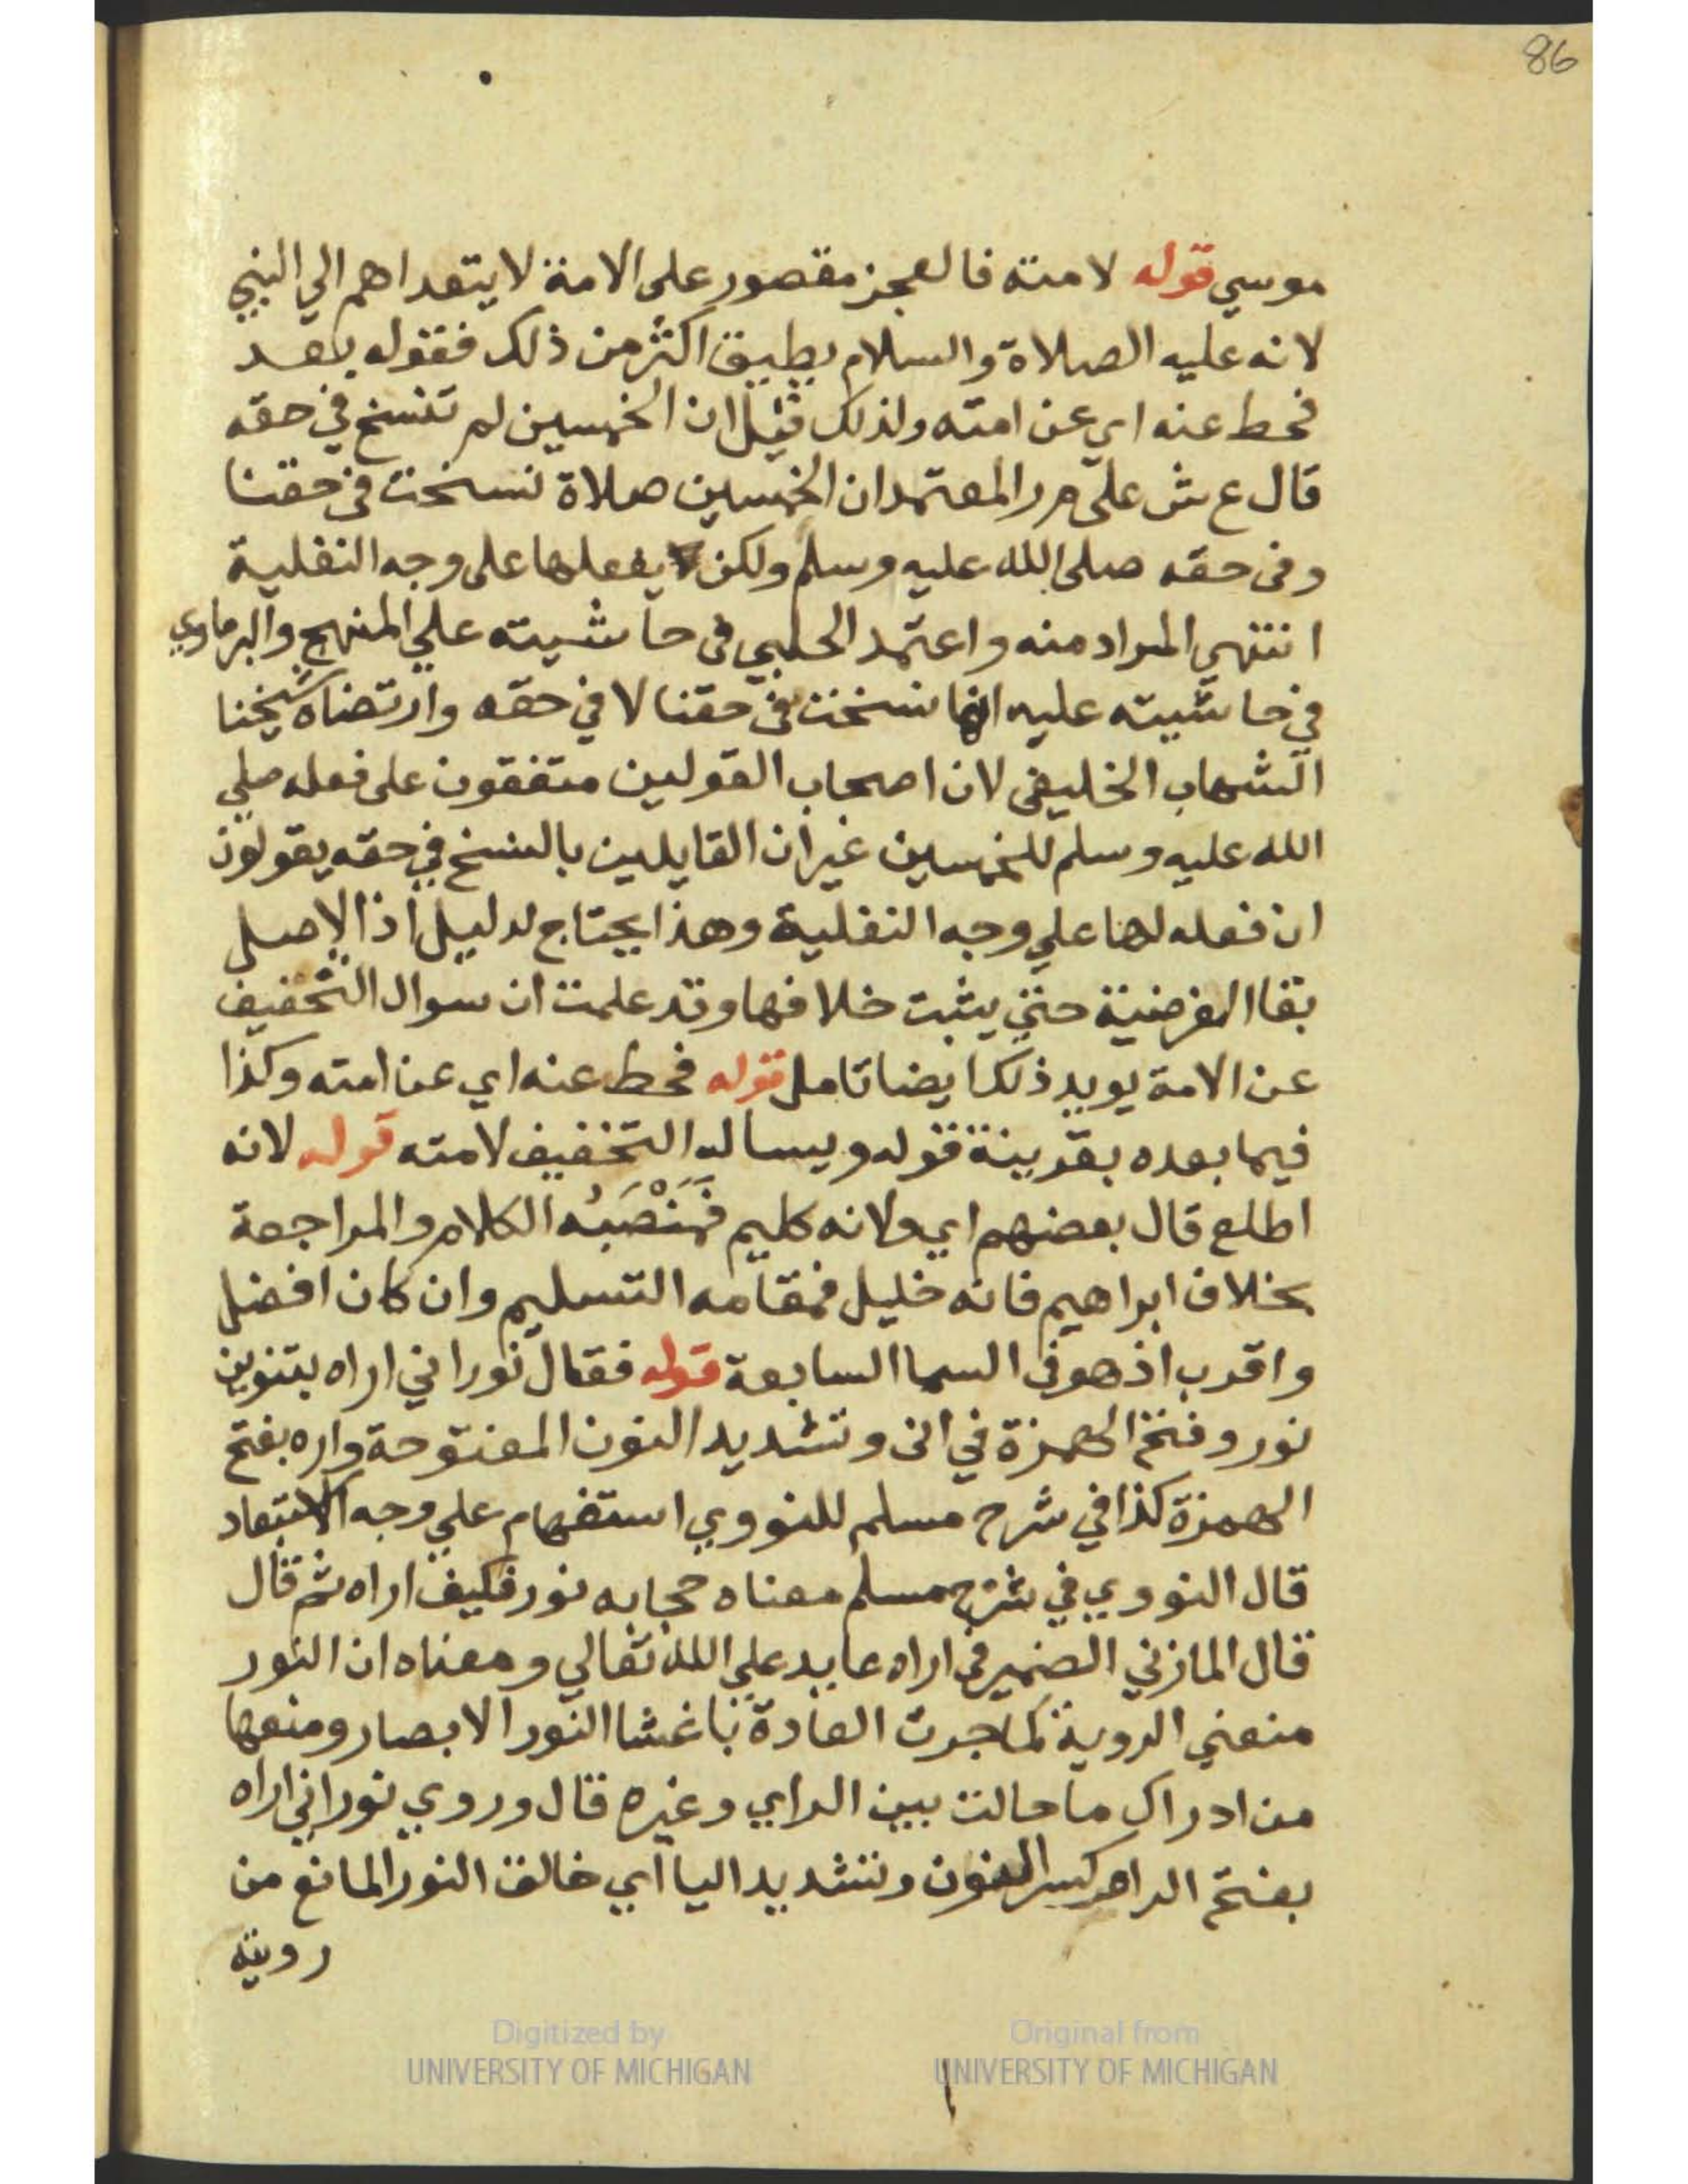 86
موسي قوله لامته فالعجز مقصور على الامة لا يتعداهم الي النبي
لانه عليه الصلاة والسلام يطيق اكثر من ذلك فقوله بعد
فحط عنه اي عن امته ولذلك قيل ان الخمسين لم تنسخ في حقه
قال ع ش على م ر المعتمد ان الخمسين صلاة نسخت في حقنا
وفى حقه صلى الله عليه وسلم ولكن يفعلها على وجه النفلية
انتهي المراد منه واعتمد الحلبي فى حاشيته علي المنهج والبرماوي
في حاشيته عليه انها نسخت فى حقنا لا في حقه وارتضاه شيخنا
الشهاب الخليفى لان اصحاب القولين متفقون على فعله صلي
الله عليه وسلم للخمسين غير ان القايلين بالنسخ في حقه يقولون
ان فعله لها علي وجه النفلية وهذا يحتاج لدليل اذ الاصل
بقا الفرضية حتي يثبت خلافها وقد علمت ان سوال التخفيف
عن الامة يويد ذلك ايضا تامل قوله فحط عنه اي عن امته وكذا
فيما بعده بقرينة قوله ويساله التخفيف لامته قوله لانه
اطلع قال بعضهم اي ولانه كليم فمَنْصَبُه الكلام والمراجعة
بخلاف ابراهيم فانه خليل فمقامه التسليم وان كان افضل
واقرب اذ هو فى السما السابعة قوله فقال نور اني اراه بتنوين
نور وفتح الهمزة في انى وتشديد النون المفتوحة واره بفتح
الهمزة كذا في شرح مسلم للنووي استفهام علي وجه الاستبعاد
قال النووي في شرح مسلم معناه حجابه نور فكيف اراه ثم قال
قال المازني الضمير في اراه عايد علي الله تعالي ومعناه ان النور
منعني الروية كما جرت العادة باغشا النور الابصار ومنعها
من ادراك ما حالت بين الراي وغيره قال وروي نوراني اراه
بفتح الرا وكسر النون وتشديد اليا اي خالق النور المانع من
رويته
Digitized by
UNIVERSITY OF MICHIGAN
Original from
UNIVERSITY OF MICHIGAN